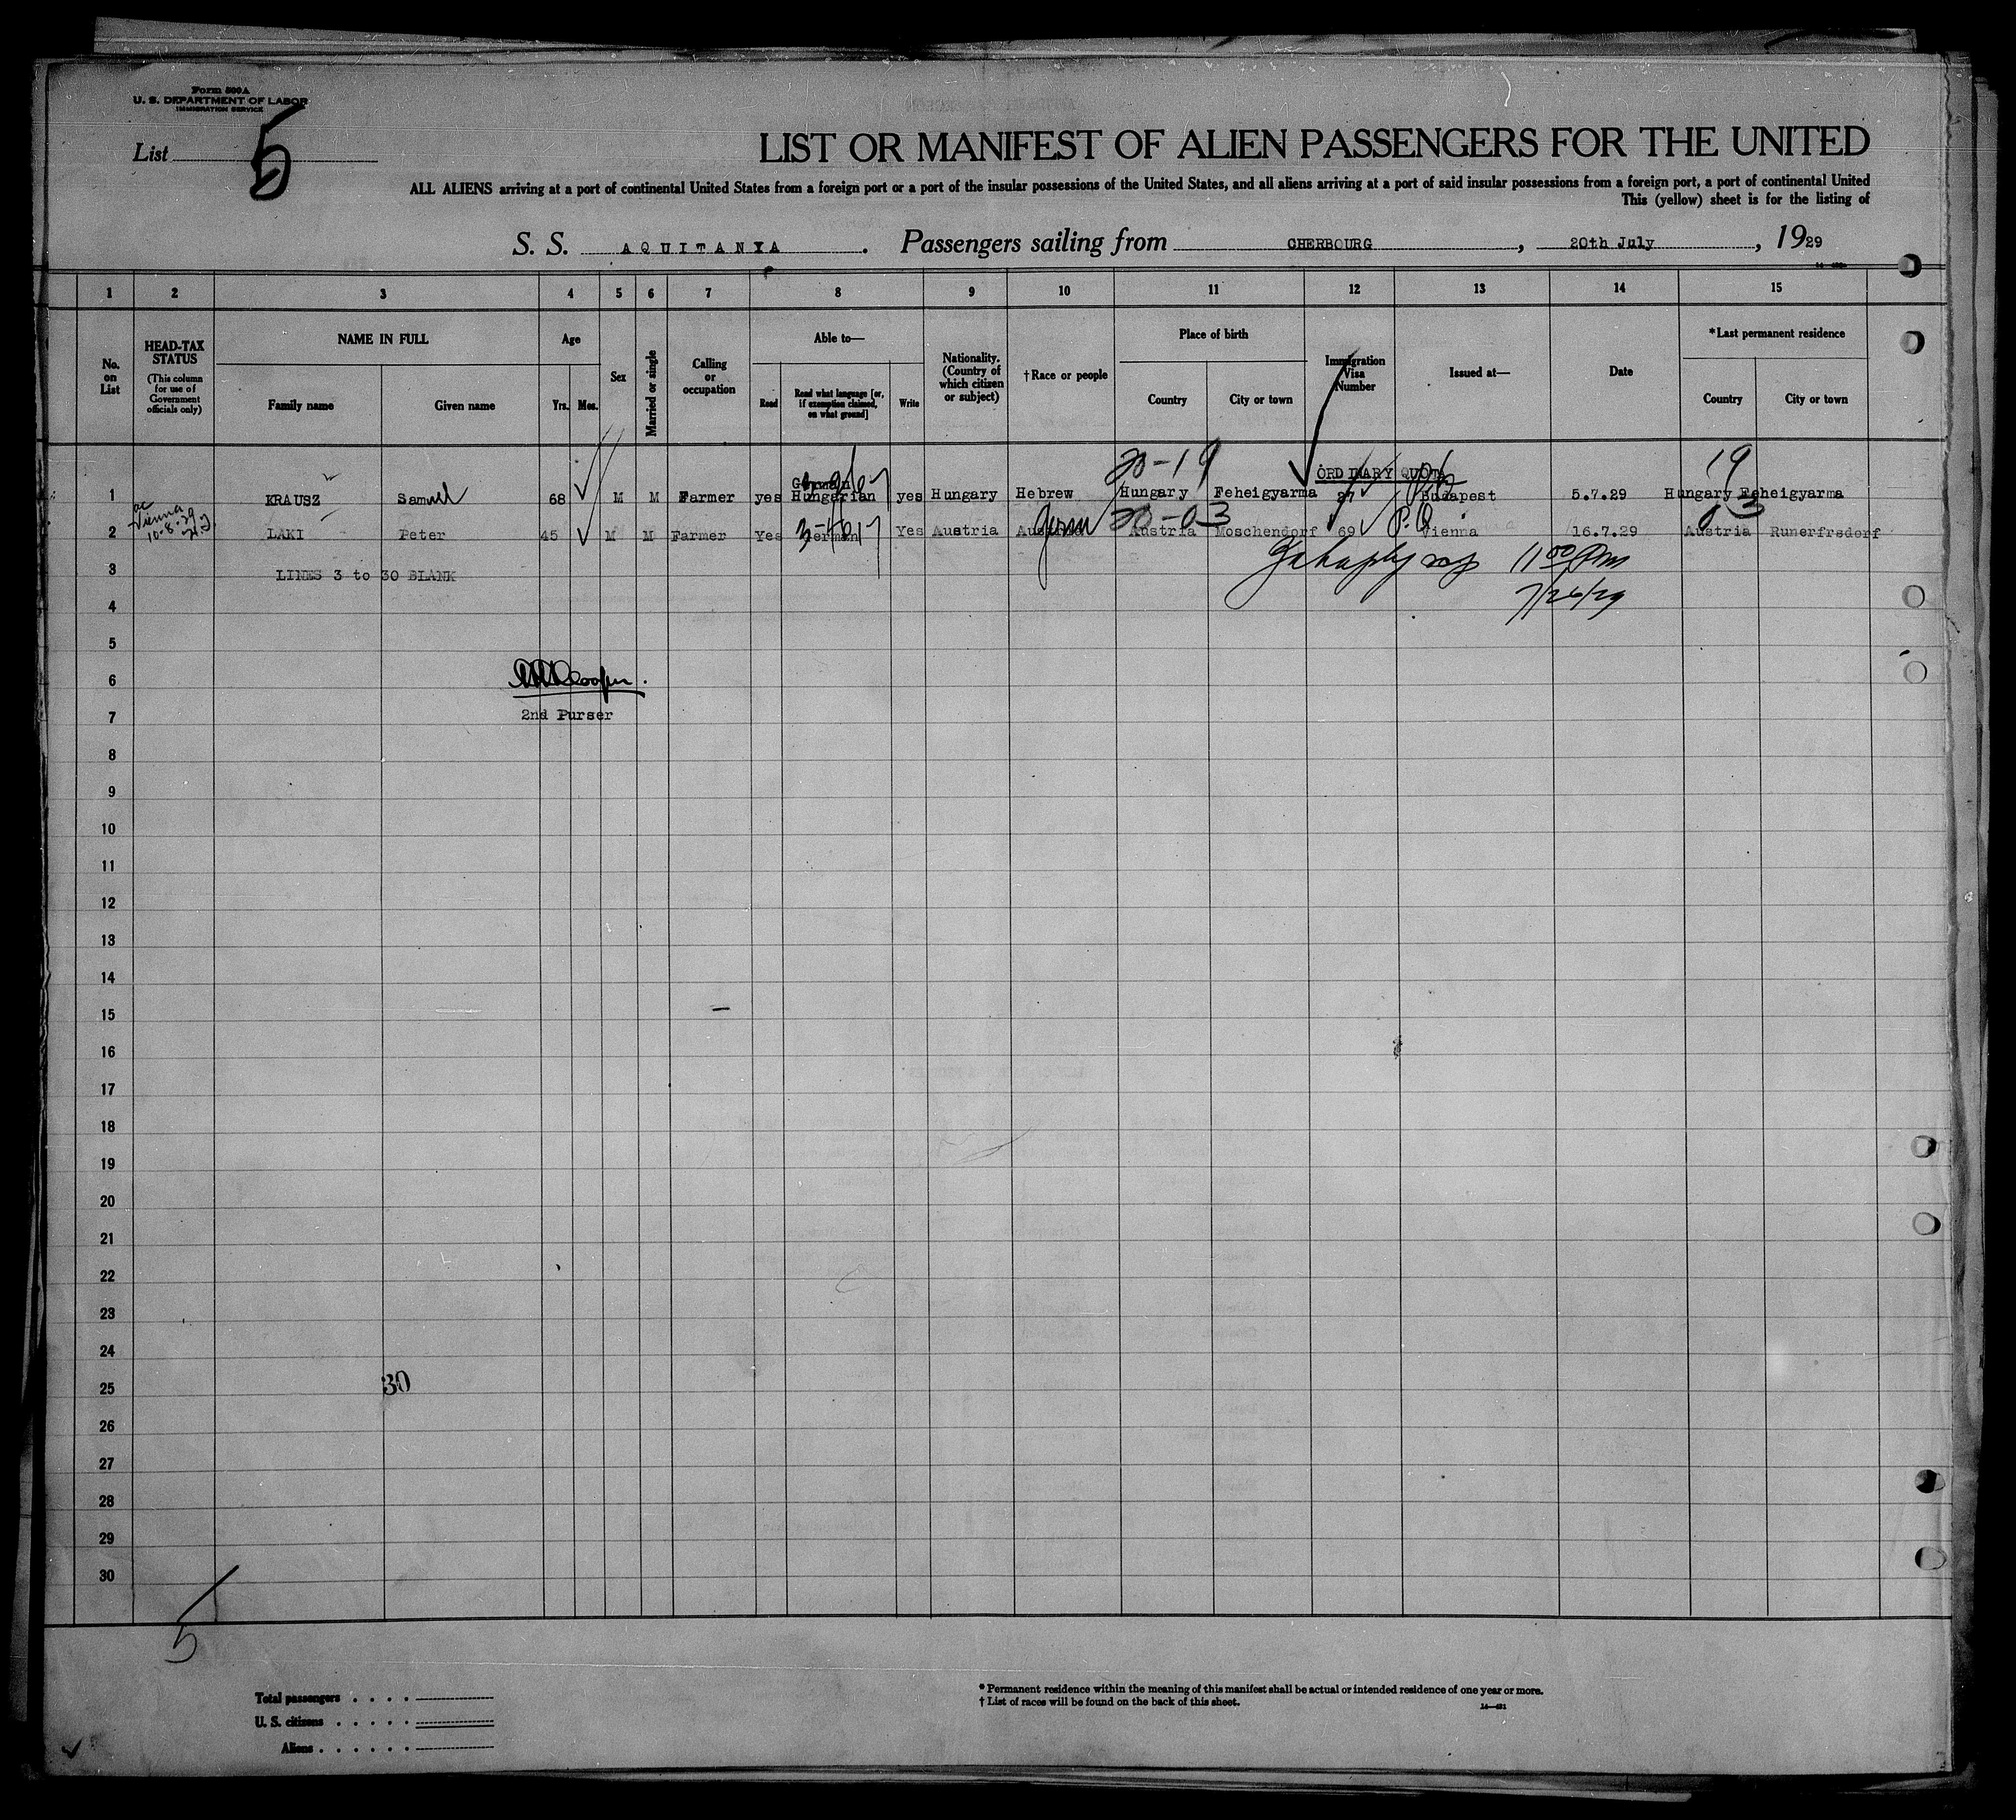 Form 500A
U. S. DEPARTMENT OF LABOR
IMMIGRATION SERVICE
List 5
LIST OR MANIFEST OF ALIEN PASSENGERS FOR THE UNITED
ALL ALIENS arriving at a port of continental United States from a foreign port or a port of the insular possessions of the United States, and all aliens arriving at a port of said insular possessions from a foreign port, a port of continental United
This (yellow) sheet is for the listing of
S. S. AQUITANIA. Passengers sailing from CHERBOURG, 20th July, 1929
1 2 3 4 5 6 7 8 9 10 11 12 13 14 15
No. on List
HEAD-TAX STATUS (This column for use of Government officials only)
NAME IN FULL
Family name Given name
Age
Yrs. Mos.
Sex
Married or single
Calling or occupation
Able to—
Read Read what language [or, if exemption claimed, on what ground] Write
Nationality. (Country of which citizen or subject)
†Race or people
Place of birth
Country City or town
Immigration Visa Number
Issued at—
Date
*Last permanent residence
Country City or town
20-19 ORDINARY QUOTA 19
German
1 KRAUSZ Samuel 68 M M Farmer yes Hungarian yes Hungary Hebrew Hungary Feheigyarma 27 Budapest 5.7.29 Hungary Feheigyarma
Vienna
20-03 P.Q. 03
2 LAKI Peter 45 M M Farmer Yes German Yes Austria Germ Austria Moschendorf 69 Vienna 16.7.29 Austria Runerfrsdorf
3 LINES 3 to 30 BLANK
11 00 Pm
7/26/29
4
5
6
2nd Purser
7
8
9
10
11
12
13
14
15
16
17
18
19
20
21
22
23
24
25 30
26
27
28
29
30
5
Total passengers
U. S. citizens
Aliens
* Permanent residence within the meaning of this manifest shall be actual or intended residence of one year or more.
† List of races will be found on the back of this sheet.